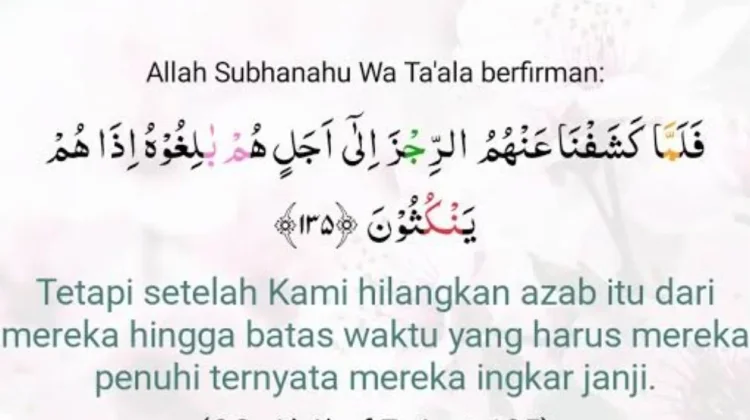 Allah Subhanahu Wa Ta'ala berfirman:
فَلَمَّا كَشَفْنَا عَنْهُمُ الرِّجْزَ اِلٰٓى اَجَلٍ هُمْ بٰلِغُوْهُ اِذَا هُمْ
يَنْكُثُوْنَ ﴿١٣٥﴾
Tetapi setelah Kami hilangkan azab itu dari
mereka hingga batas waktu yang harus mereka
penuhi ternyata mereka ingkar janji.